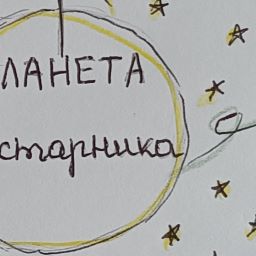 ЛАНЕТА
старника